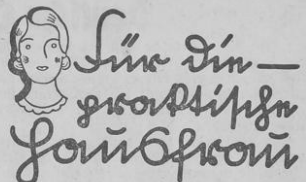 Für die —
praktische
Hausfrau